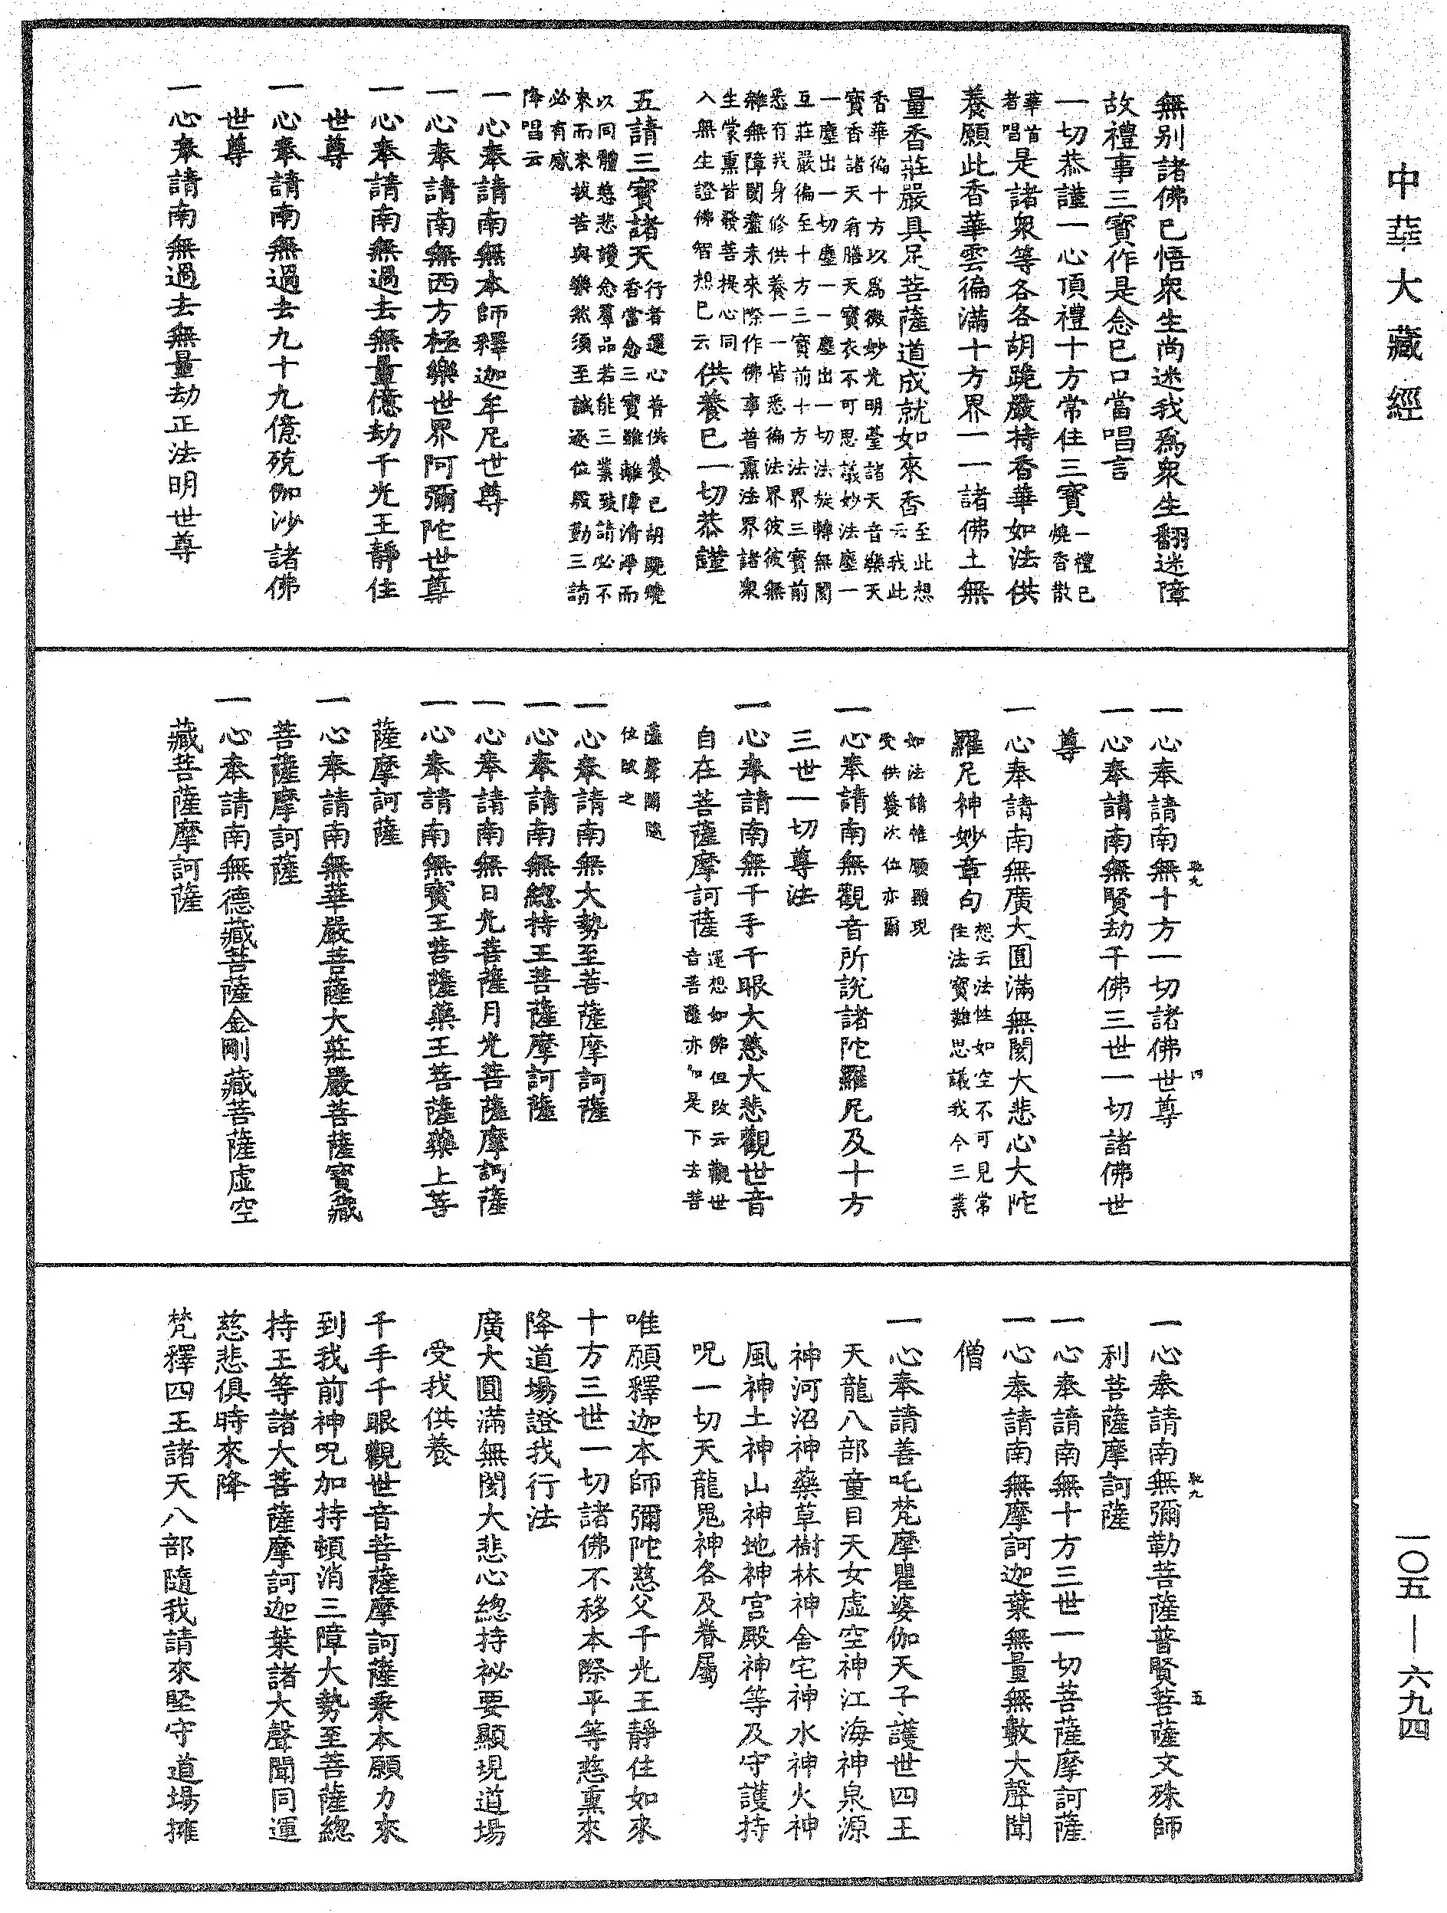 中華大藏經
無别諸佛已悟衆生尚迷我爲衆生翻迷障
故禮事三寶作是念已口當唱言
一切恭謹一心頂禮十方常住三寶一禮已燒香散
華首者唱是諸衆等各各胡跪嚴持香華如法供
養願此香華雲徧滿十方界一一諸佛土無
量香莊嚴具足菩薩道成就如來香至此想云我此
香華徧十方以爲微妙光明臺諸天音樂天
寶香諸天肴膳天寶衣不可思議妙法塵一
一塵出一切塵一一塵出一切法旋轉無閡
互莊嚴徧至十方三寶前十方法界三寶前
悉有我身修供養一一皆悉徧法界彼彼無
雜無障閡盡未來際作佛事普熏法界諸衆
生蒙熏皆發菩提心同
入無生證佛智想已云供養已一切恭謹
五請三寶諸天行者運心普供養已胡跪燒
香當念三寶雖離障清淨而
以同體慈悲護念羣品若能三業致請必不
來而來拔苦與樂然須至誠逐位殷勤三請
必有感
降唱云
一心奉請南無本師釋迦牟尼世尊
一心奉請南無西方極樂世界阿彌陀世尊
一心奉請南無過去無量億劫千光王靜住
世尊
一心奉請南無過去九十九億殑伽沙諸佛
世尊
一心奉請南無過去無量劫正法明世尊
一心奉請南無十方一切諸佛世尊
一心奉請南無賢劫千佛三世一切諸佛世
尊
一心奉請南無廣大圓滿無閡大悲心大陀
羅尼神妙章句想云法性如空不可見常
住法寶難思議我今三業
如法請惟願顯現
受供養次位亦爾
一心奉請南無觀音所說諸陀羅尼及十方
三世一切尊法
一心奉請南無千手千眼大慈大悲觀世音
自在菩薩摩訶薩運想如佛但改云觀世
音菩薩亦如是下去菩
薩聲聞隨
位改之
一心奉請南無大勢至菩薩摩訶薩
一心奉請南無總持王菩薩摩訶薩
一心奉請南無日光菩薩月光菩薩摩訶薩
一心奉請南無寶王菩薩藥王菩薩藥上菩
薩摩訶薩
一心奉請南無華嚴菩薩大莊嚴菩薩寶藏
菩薩摩訶薩
一心奉請南無德藏菩薩金剛藏菩薩虛空
藏菩薩摩訶薩
一心奉請南無彌勒菩薩普賢菩薩文殊師
利菩薩摩訶薩
一心奉請南無十方三世一切菩薩摩訶薩
一心奉請南無摩訶迦葉無量無數大聲聞
僧
一心奉請善吒梵摩瞿婆伽天子護世四王
天龍八部童目天女虛空神江海神泉源
神河沼神藥草樹林神舍宅神水神火神
風神土神山神地神宫殿神等及守護持
呪一切天龍鬼神各及眷屬
唯願釋迦本師彌陀慈父千光王靜住如來
十方三世一切諸佛不移本際平等慈熏來
降道場證我行法
廣大圓滿無閡大悲心總持祕要顯現道場
受我供養
千手千眼觀世音菩薩摩訶薩乘本願力來
到我前神呪加持頓消三障大勢至菩薩總
持王等諸大菩薩摩訶迦葉諸大聲聞同運
慈悲俱時來降
梵釋四王諸天八部隨我請來堅守道場擁
一〇五—六九四